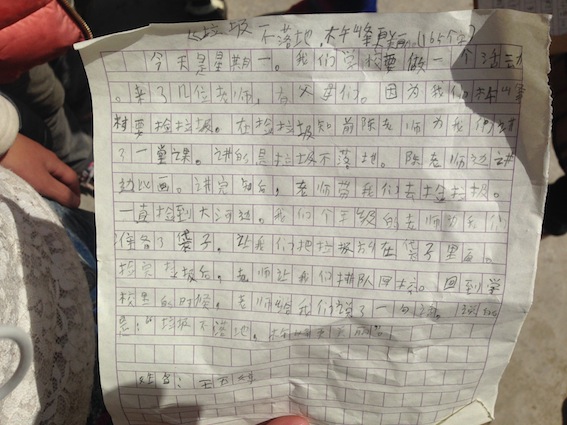 《垃圾不落地，木峰更 (165个字)
今天是星期一。我们学校要做一个活动
。来了几位老师，有父母们。因为我们木峰
村要捡垃圾。在捡垃圾知前陈老师为我们讲
了一堂课。讲的是垃圾不落地。陈老师边讲
边比画。讲完知后，老师带我们去捡垃圾。
一真捡到大河边。我们个三级的老师为我们
准备了袋子。让我们把垃圾放在袋子里面。
捡完垃圾后，老师让我们排队回去。回到学
校里的时候。老师给我们说了一句话。
是：“垃圾不落地，木峰
姓名：王